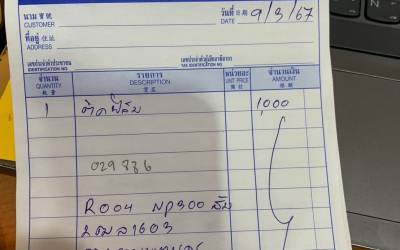 นาม 宝號
CUSTOMER
วันที่ 日期 9/3/67
DATE
ที่อยู่ 住址
ADDRESS
เลขประจำตัวประชาชน
IDENTIFICATION NO.
เลขประจำตัวผู้เสียภาษีอากร
TAX IDENTIFICATION NO.
จำนวน รายการ หน่วยละ จำนวนเงิน
QUANTITY DESCRIPTION UNIT PRICE AMOUNT
1 ติดฟิล์ม 1,000
029836
R004 NP300
2ฒล1603